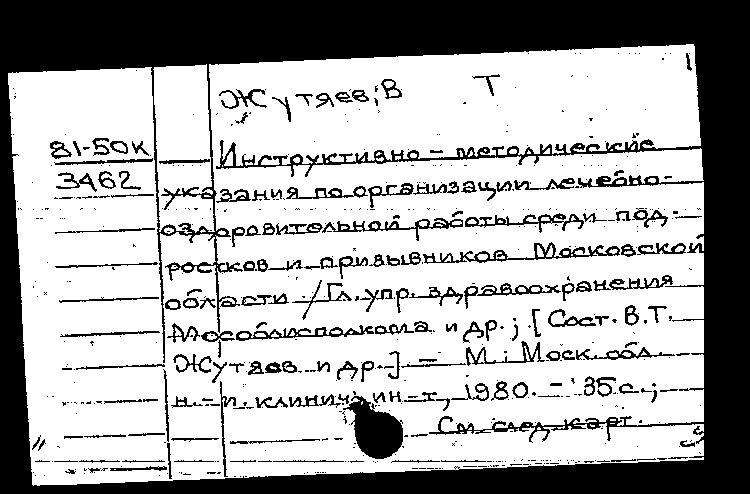 1
Жутяев, В Т
81-50к
3462
Инструктивно-методические
указания по организации лечебно-
оздоровительной работы среди под-
ростков и призывников Московской
области / Гл. упр. здравоохранения
Мособлисполкома и др.; [Сост. В.Т.
Жутяев и др.] - М.: Моск. обл.
н.-и. клинич. ин-т, 1980. - 35 с.;
См. след. карт.